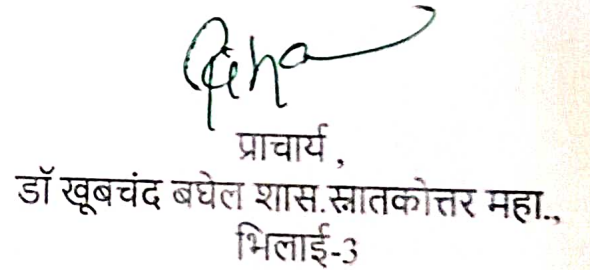 प्राचार्य ,
डॉ खूबचंद बघेल शास.स्नातकोत्तर महा.,
भिलाई-3